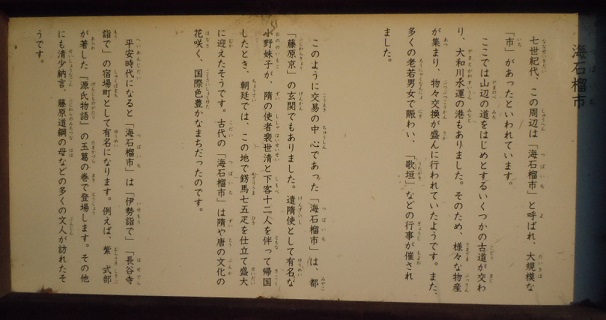 海石榴市
七世紀代、この周辺は「海石榴市」と呼ばれ、大規模な
「市」があったといわれています。
ここでは山辺の道をはじめとするいくつかの古道が交わ
り、大和川水運の港もありました。そのため、様々な物産
が集まり、物々交換が盛んに行われていたようです。また、
多くの老若男女で賑わい、「歌垣」などの行事が催され
ました。
このように交易の中心であった「海石榴市」は、都
「藤原京」の玄関でもありました。遣隋使として有名な
小野妹子が、隋の使者裴世清と下客十二人を伴って帰国
したとき、朝廷では、この地で錺馬七五疋を仕立て盛大
に迎えたそうです。古代の「海石榴市」は隋や唐の文化の
花咲く、国際色豊かなまちだったのです。
平安時代になると「海石榴市」は「伊勢詣で」「長谷寺
詣で」の宿場町として有名になります。例えば、紫式部
が著した『源氏物語』の玉葛の巻で登場します。その他
にも清少納言、藤原道綱の母などの多くの文人が訪れたそ
うです。